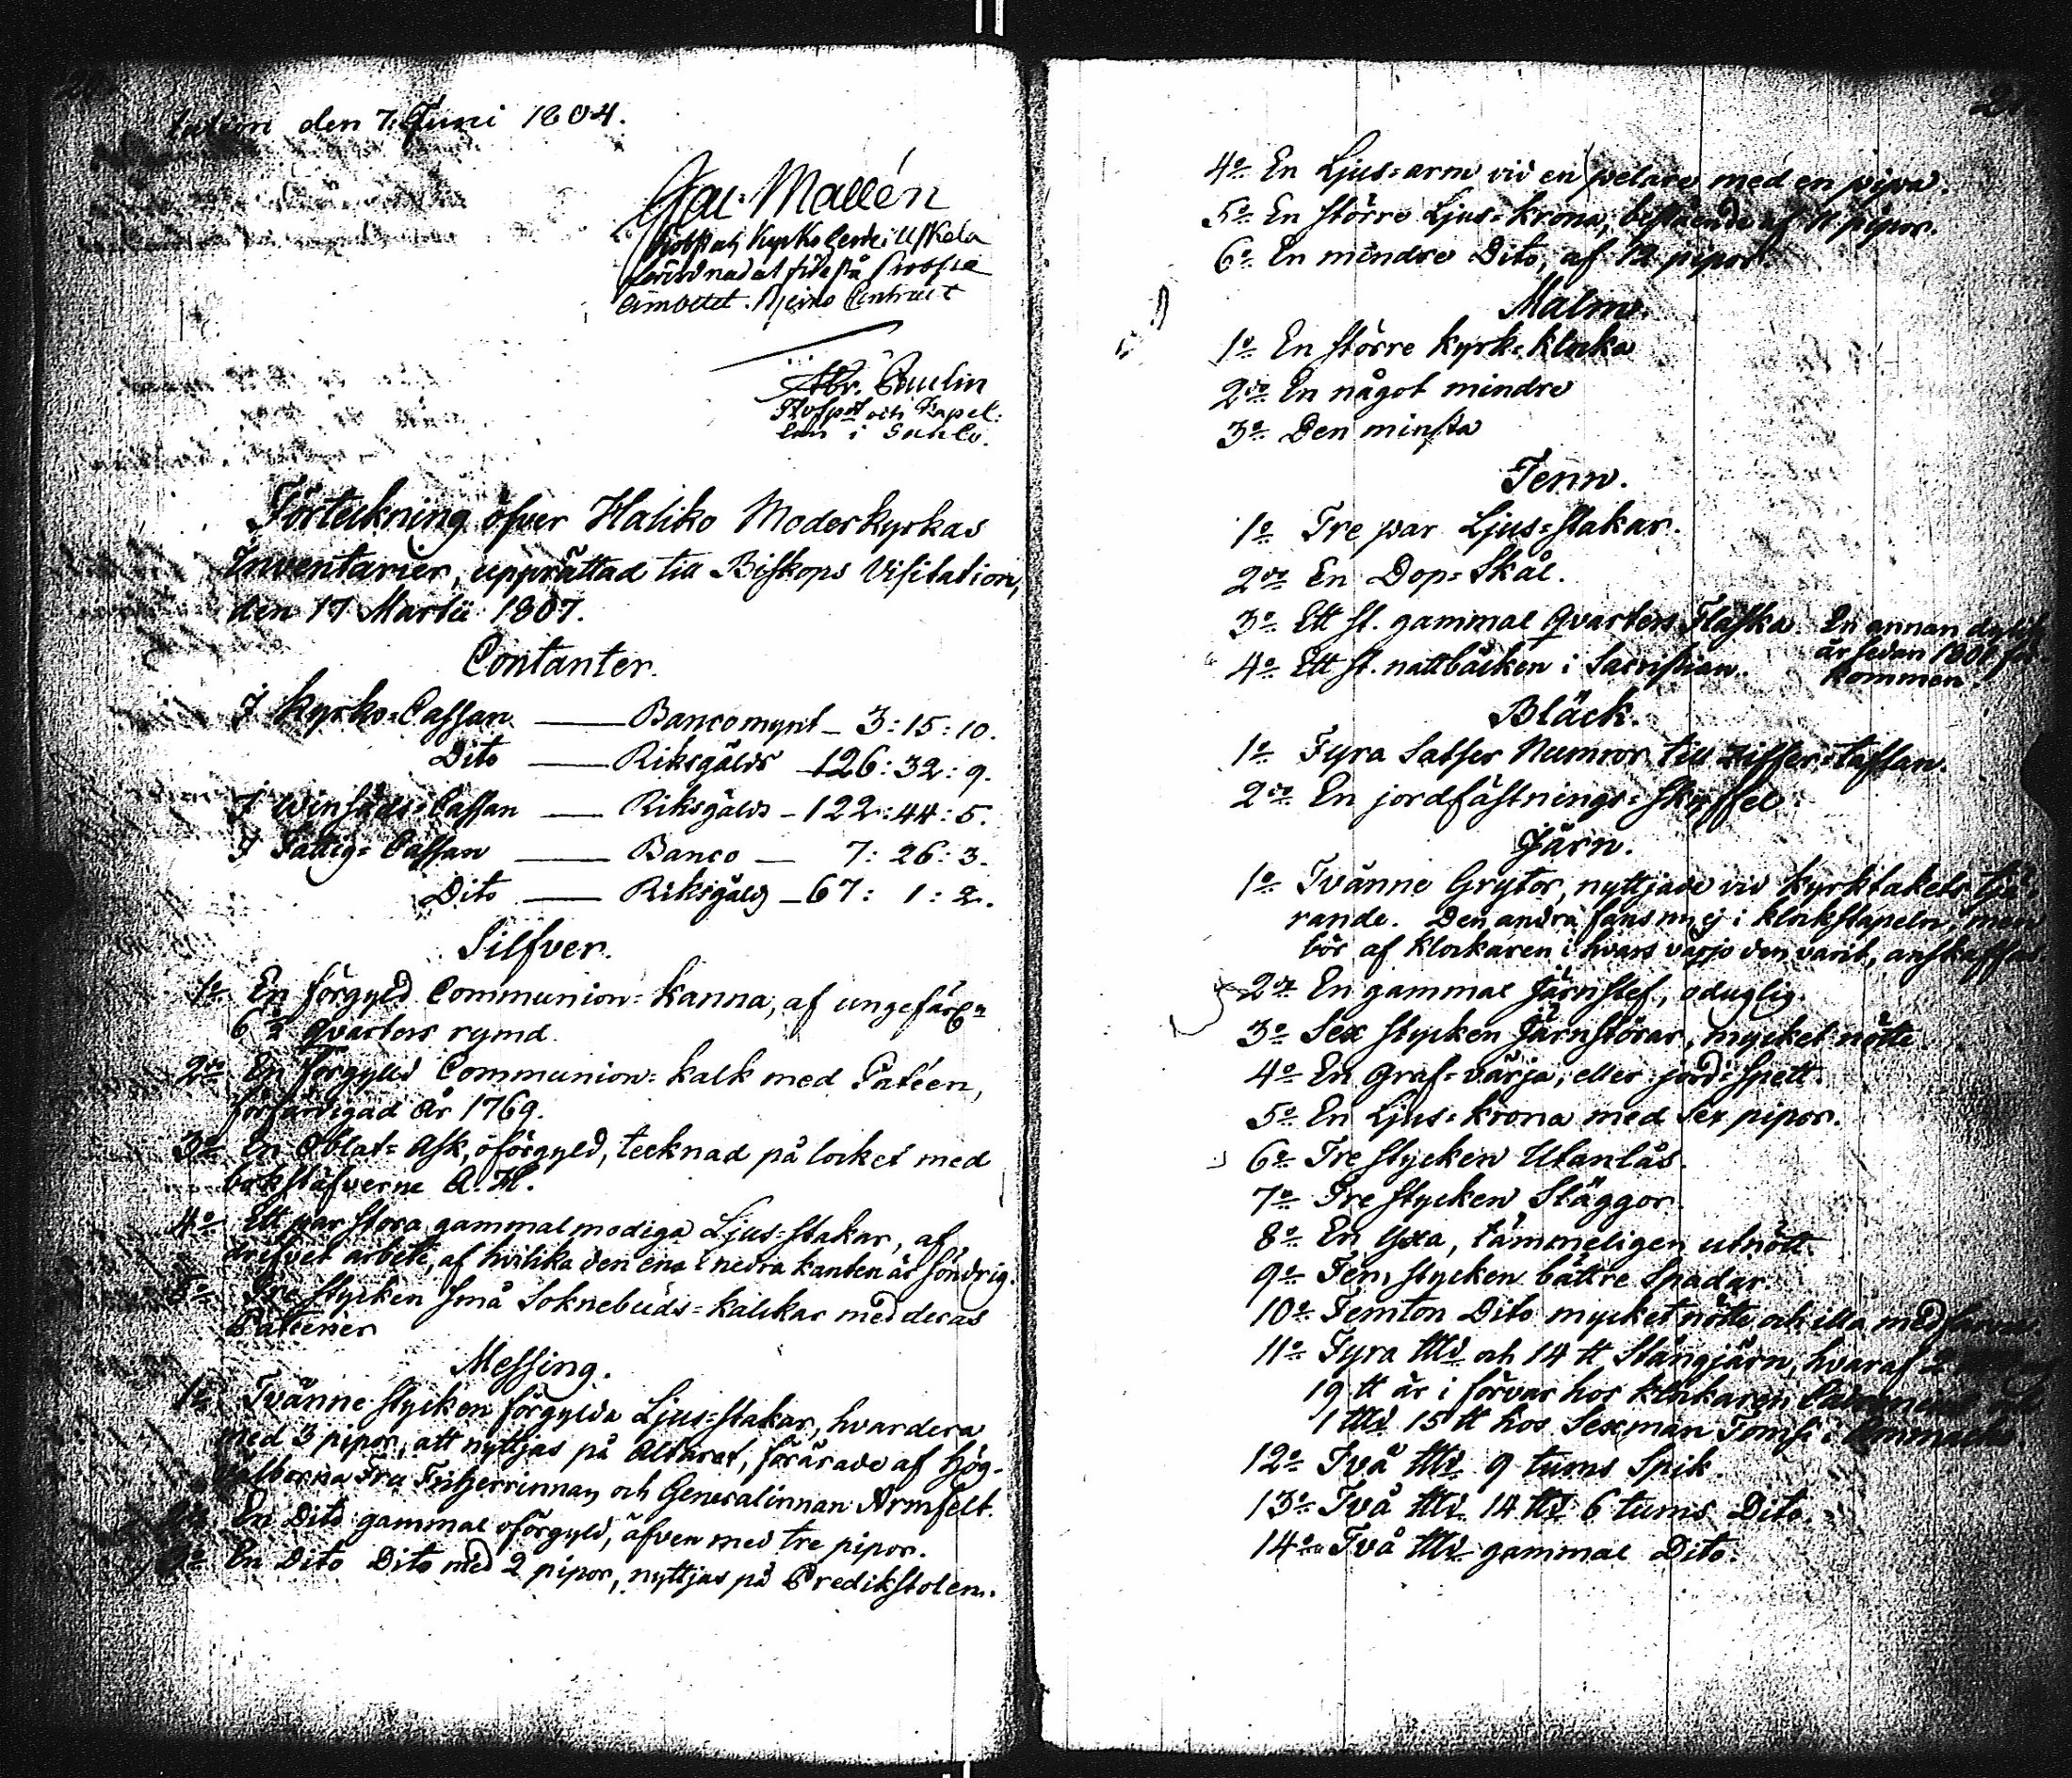 den 7. Juni 1804.
Gal. Mallén
Abr.
och Kapel:
lan i
Förteckning öfver Haliko Moderkyrkas
Inventarier, upprättad till Biskops Visitation,
den 17 Martii 1807.
Contanter.
I Kyrko=Cassan — Bancomynt — 3: 15: 10.
Dito — Riksgälds — 126: 32: 9.
I Winsäds=Cassan — Riksgälds — 122: 44: 5.
I Fattig=Cassan — Banco — 7: 26: 3.
Dito — Riksgälds — 67: 1: 2.
Silfver.
1o En förgyld Communion=Kanna, af ungefär
6 ½ qvarters rymd.
2do En förgylld Communion=kalk med Patéen,
förfärdigad År 1769.
3o En Oblat=Ask, oförgyld, tecknad på locket med
bokstäfverne A. H.
4o Ett par stora gammalmodiga Ljus=stakar, af
drifvet arbete, af hvilka den ena i nedra kanten är söndrig.
5o Tre stycken små Soknebuds=kalkar med deras
Patener
Messing.
1o Tvänne stycken förgylda Ljus=stakar, hvardera
med 3 pipor, att nyttjas på Altaret, förärade af Hög-
välborna Fru Friherrinnan och Generalinnan Armfelt.
2do En Dito gammal oförgyld, äfven med tre pipor.
3o En Dito Dito med 2 pipor, nyttjas på Predikstolen.
4o En Ljus=arm vid en pelare med en pipa.
5o En större Ljus=krona, bestående af pipor.
6o En mindre Dito, af 12 pipor.
Malm.
1o En större Kyrk=klocka
2do En något mindre
3o Den minsta
Tenn.
1o Tre par Ljus=stakar.
2do En Dop=Skål.
3o Ett st. gammal qvarters Flaska. En annan dylik
är sedan 180
kommen.
4o Ett st. nattbäcken i Sacristian.
Bläck.
1o Fyra Satser Numror till Ziffer=taflan.
2do En jordfästnings=skyffel.
Järn.
1o Tvänne Grytor, nyttjade vid Kyrktakets tjä-
rande. Den andra fans nu ej i klockstapeln, men
bör af klockaren i hvars värjo den varit, anskaffas
2do En gammal Järnslef, oduglig.
3o Sex stycken Järnstörar, mycket nötte.
4o En Graf=värja, eller jord=spett.
5o En Ljus=krona med Sex pipor.
6o Tre stycken Utanlås.
7o Tre stycken Släggor.
8o En Yxa, tämmeligen utnött.
9o Fem stycken bättre Spadar.
10o Femton Dito mycket nötte och illa medfarne.
11o Fyra och 14 ℔ Stångjärn, hvaraf 2
19 ℔ är i förvar hos klockaren
1 15 ℔ hos Sexman Tomse i
12o Två 9 tums Spik.
13o Två 14 6 tums Dito.
14o Två gammal Dito.